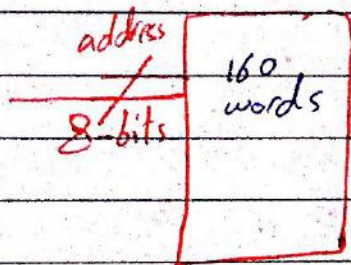 address
8-bits
160
words